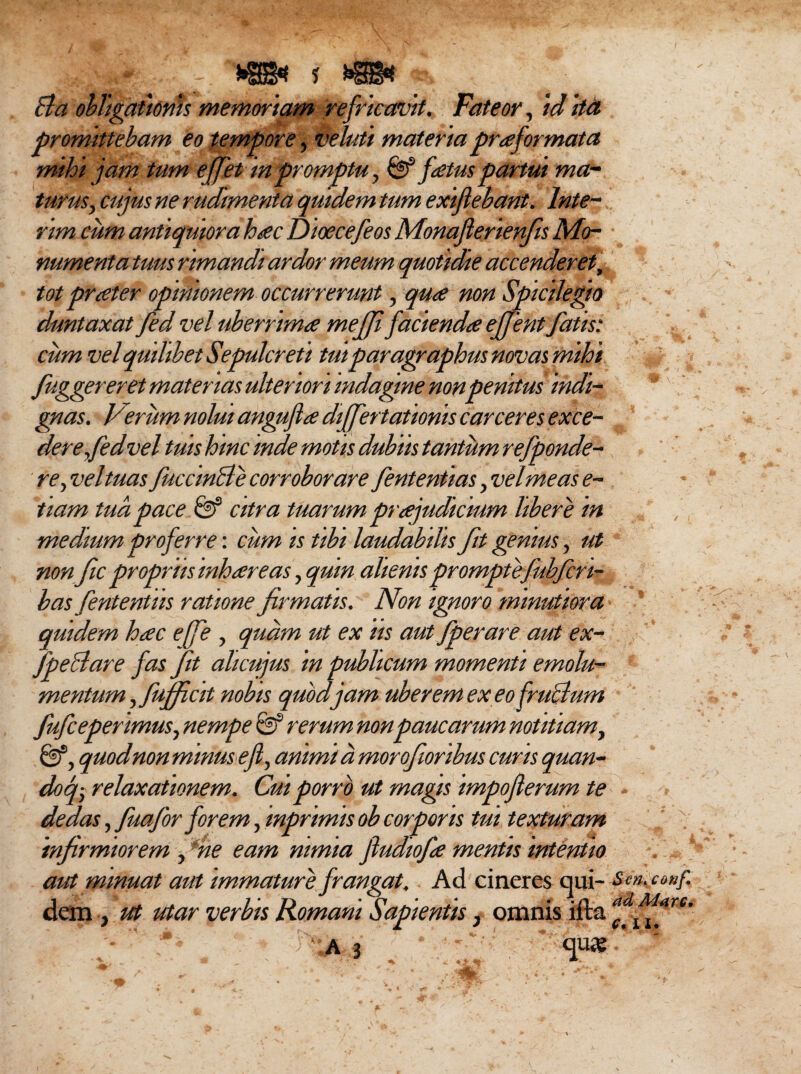 5
cta obligationis memoriam refricavit. Fateor, id ita
promittebam eo tempore, veluti materia præformata
mihi jam tum esset in promptu, & fœtus partui ma-
turus, cujus ne rudimenta quidem tum existebant. Inte-
rim cùm antiquiora hæc Diœceseos Monasteriensis Mo-
numenta tuus rimandi ardor meum quotidie accenderet,
tot præter opinionem occurrerunt, quæ non Spicilegio
duntaxat sed vel uberrimæ messi faciendæ essent satis:
cùm vel quilibet Sepulcreti tui paragraphus novas mihi
suggereret materias ulteriori indagine non penitus indi-
gnas. Verùm nolui angustæ dissertationis carceres exce-
dere, sed vel tuis hinc inde motis dubiis tantùm responde-
re, vel tuas succinctè corroborare sententias, vel meas e-
tiam tuâ pace & citra tuarum præjudicium liberè in
medium proferre: cùm is tibi laudabilis sit genius, ut
non sic propriis inhæreas, quin alienis promptè subscri-
bas sententiis ratione firmatis. Non ignoro minutiora
quidem hæc esse, quàm ut ex iis aut sperare aut ex-
spectare fas sit alicujus in publicum momenti emolu-
mentum, sufficit nobis quòd jam uberem ex eo fructum
susceperimus, nempe & rerum non paucarum notitiam,
&, quod non minus est, animi à morosioribus curis quan-
doq; relaxationem. Cui porrò ut magis imposterum te
dedas, suasor forem, inprimis ob corporis tui texturam
infirmiorem, ne eam nimia studiosæ mentis intentio
aut minuat aut immaturè frangat. Ad cineres qui- Sen. conf.
dem, ut utar verbis Romani Sapientis, omnis ista ad Marc.
c. 11.
A 3 quæ